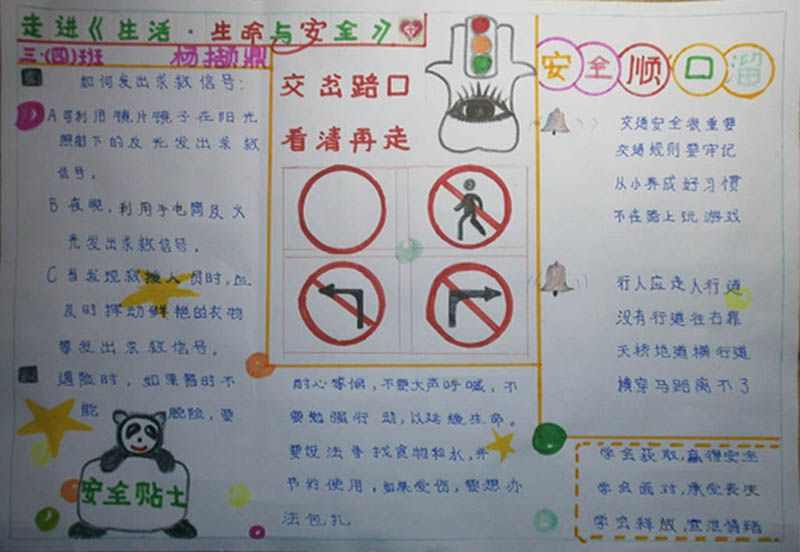 走进《生活·生命与安全》
三·(四)班 杨撷鼎
如何发出求救信号:
A可利用镜片镜子在阳光
照射下的反光发出求救
信号。
B夜晚,利用手电筒及火
光发出求救信号。
C当发现救援人员时,应
及时挥动鲜艳的衣物
等发出求救信号。
遇险时,如果暂时不
能 脱险,要
安全贴士
交岔路口
看清再走
耐心等候,不要大声呼喊,不
要勉强行动,以延缓生命。
要设法寻找食物和水,并
节约使用,如果受伤,要想办
法包扎
安全顺口溜
交通安全很重要
交通规则要牢记
从小养成好习惯
不在路上玩游戏
行人应走人行道
没有行道往右靠
天桥地道横行道
横穿马路离不了
学会获取,赢得安全
学会面对,承受丧失
学会释放,宣泄情绪